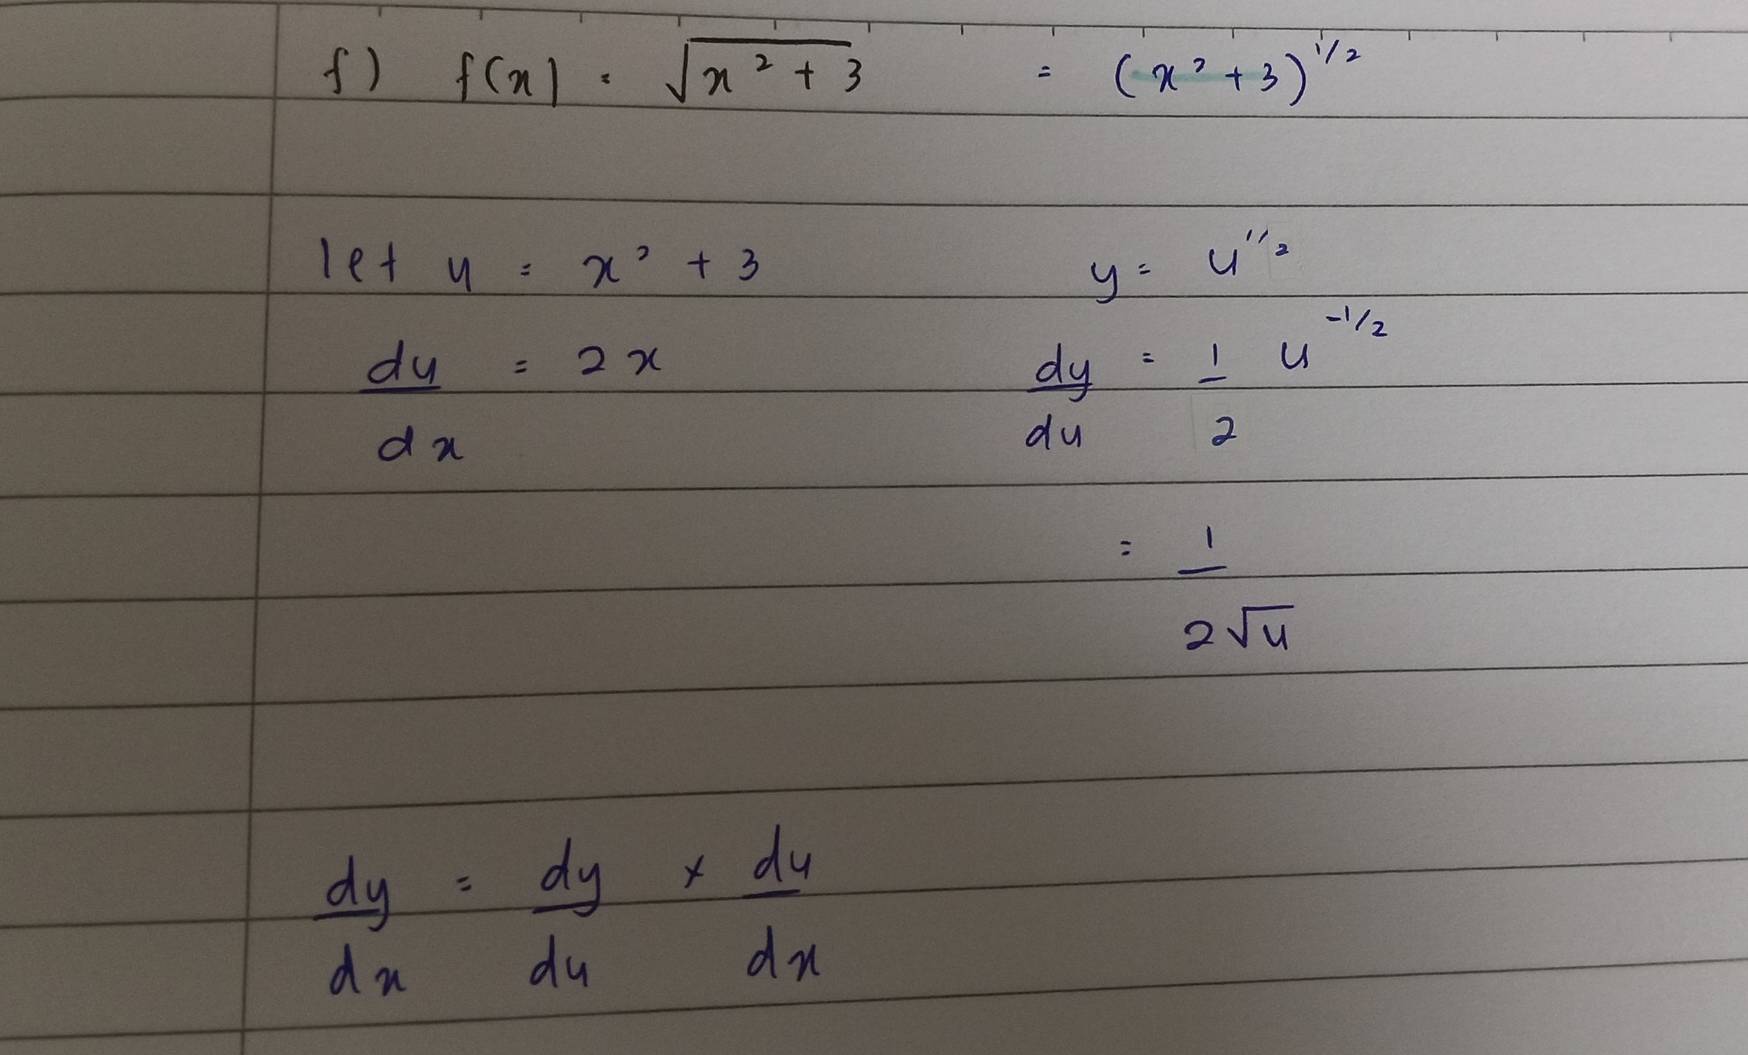 f) f(x) = √(x² + 3) = (x² + 3)^1/2
let u = x² + 3 y = u^1/2
du/dx = 2x dy/du = 1/2 u^-1/2
= 1/(2√u)
dy/dx = dy/du × du/dx